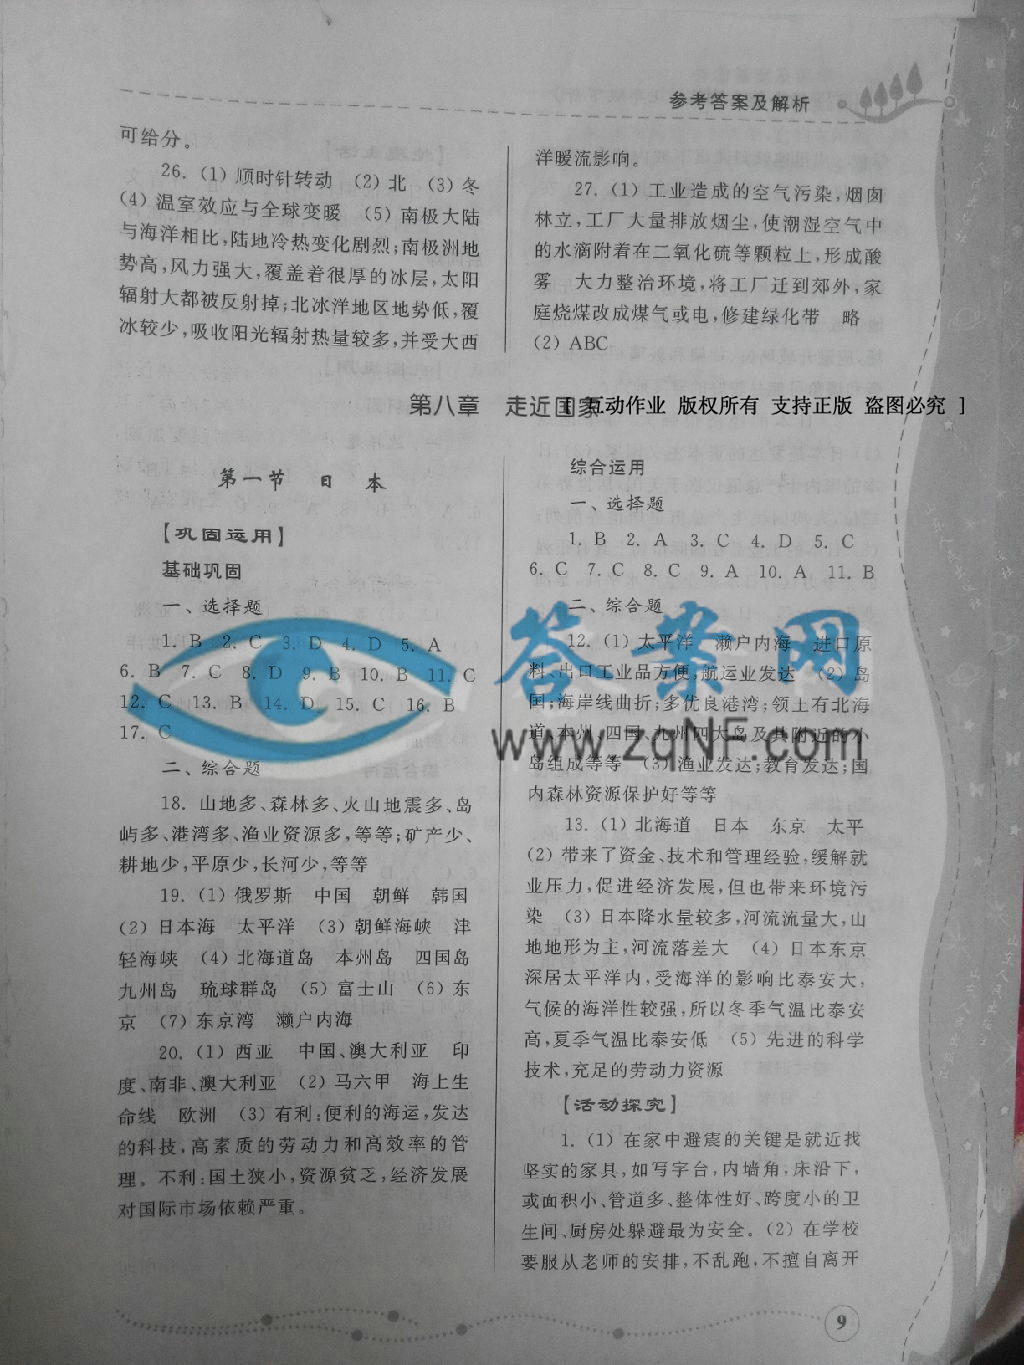 参考答案及解析
可给分。
26. (1) 顺时针转动 (2) 北 (3) 冬
(4) 温室效应与全球变暖 (5) 南极大陆
与海洋相比,陆地冷热变化剧烈;南极洲地
势高,风力强大,覆盖着很厚的冰层,太阳
辐射大都被反射掉;北冰洋地区地势低,覆
冰较少,吸收阳光辐射热量较多,并受大西
洋暖流影响。
27. (1) 工业造成的空气污染,烟囱
林立,工厂大量排放烟尘,使潮湿空气中
的水滴附着在二氧化硫等颗粒上,形成酸
雾 大力整治环境,将工厂迁到郊外,家
庭烧煤改成煤气或电,修建绿化带 略
(2) ABC
第八章 走近国家
[ 互动作业 版权所有 支持正版 盗图必究 ]
第一节 日 本
【巩固运用】
基础巩固
一、选择题
1. B 2. C 3. D 4. D 5. A
6. B 7. C 8. D 9. B 10. B 11. C
12. C 13. B 14. D 15. C 16. B
17. C
二、综合题
18. 山地多、森林多、火山地震多、岛
屿多、港湾多、渔业资源多,等等;矿产少、
耕地少,平原少,长河少,等等
19. (1) 俄罗斯 中国 朝鲜 韩国
(2) 日本海 太平洋 (3) 朝鲜海峡 津
轻海峡 (4) 北海道岛 本州岛 四国岛
九州岛 琉球群岛 (5) 富士山 (6) 东
京 (7) 东京湾 濑户内海
20. (1) 西亚 中国、澳大利亚 印
度、南非、澳大利亚 (2) 马六甲 海上生
命线 欧洲 (3) 有利:便利的海运,发达
的科技,高素质的劳动力和高效率的管
理。不利:国土狭小,资源贫乏,经济发展
对国际市场依赖严重。
综合运用
一、选择题
1. B 2. A 3. C 4. D 5. C
6. C 7. C 8. C 9. A 10. A 11. B
二、综合题
12. (1) 太平洋 濑户内海 进口原
料、出口工业品方便,航运业发达 (2) 岛
国;海岸线曲折;多优良港湾;领土有北海
道、本州、四国、九州四大岛及其附近的小
岛组成等等 (3) 渔业发达;教育发达;国
内森林资源保护好等等
13. (1) 北海道 日本 东京 太平
(2) 带来了资金、技术和管理经验,缓解就
业压力,促进经济发展,但也带来环境污
染 (3) 日本降水量较多,河流流量大,山
地地形为主,河流落差大 (4) 日本东京
深居太平洋内,受海洋的影响比泰安大,
气候的海洋性较强,所以冬季气温比泰安
高,夏季气温比泰安低 (5) 先进的科学
技术,充足的劳动力资源
【活动探究】
1. (1) 在家中避震的关键是就近找
坚实的家具,如写字台,内墙角,床沿下,
或面积小、管道多、整体性好、跨度小的卫
生间、厨房处躲避最为安全。(2) 在学校
要服从老师的安排,不乱跑,不擅自离开
答案网
www.zqNF.com
9